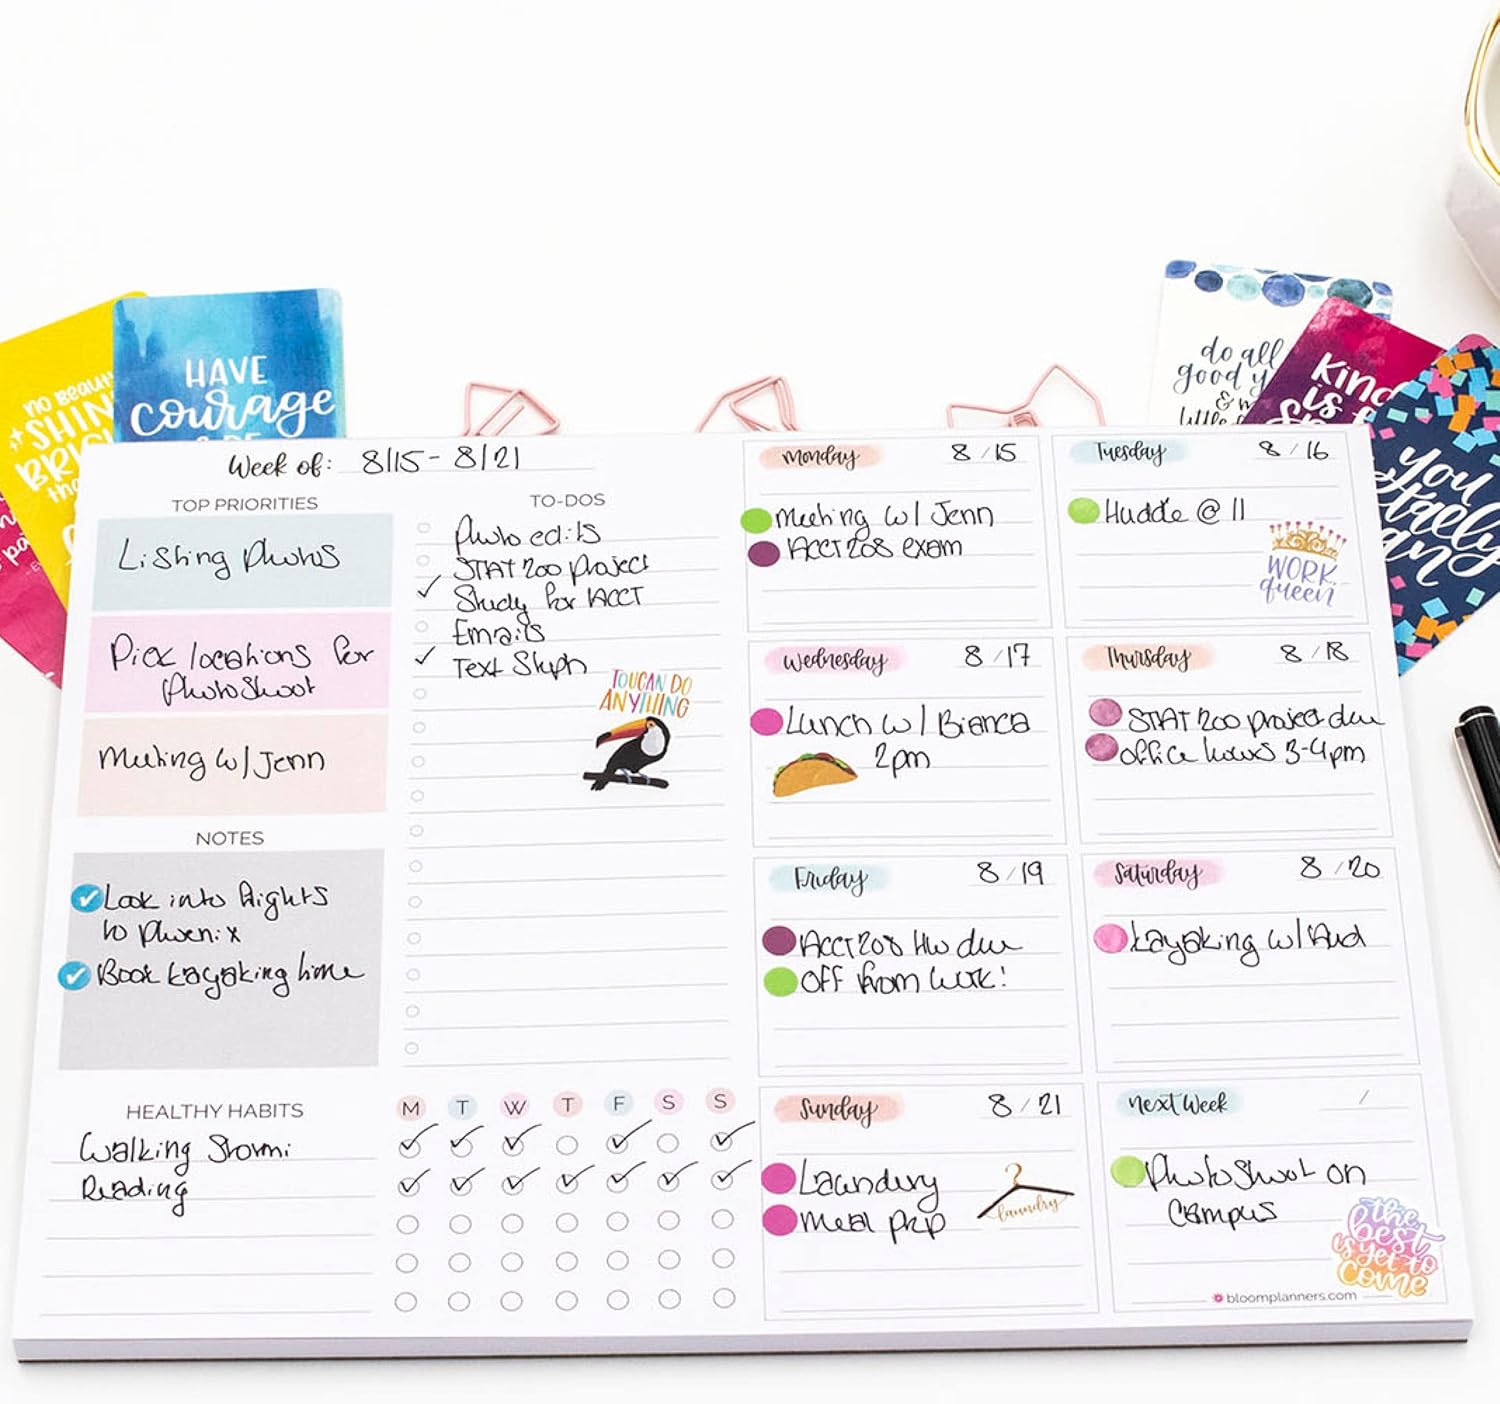 no beauty
SHINES
BRIGHTER
HAVE
courage
& BE
do all
good y
& w
little
Kind
is f
you
totally
can
Week of: 8/15 - 8/21
TOP PRIORITIES
Listing Photos
Pick locations for
Photoshoot
Meeting w/ Jenn
NOTES
Look into flights
to Phoenix
Book kayaking time
TO-DOS
Photo edits
STAT 200 project
Study for ACCT
Emails
Text Steph
TOUCAN DO
ANYTHING
HEALTHY HABITS
M T W T F S S
Walking Stormi
Reading
Monday 8/15
Meeting w/ Jenn
ACCT 208 exam
Tuesday 8/16
Huddle @ 11
WORK
queen
Wednesday 8/17
Lunch w/ Bianca
2pm
Thursday 8/18
STAT 200 project due
office hours 3-4pm
Friday 8/19
ACCT 208 HW due
OFF from work!
Saturday 8/20
Kayaking w/ Aud
Sunday 8/21
Laundry
Meal prep
laundry
next week /
Photoshoot on
Campus
the
best
is yet to
come
bloomplanners.com